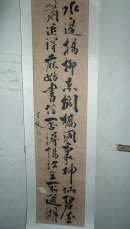 水邊楊柳赤欄橋洞裏神仙碧玉
簫近得麻姑書信否潯陽江上不通潮